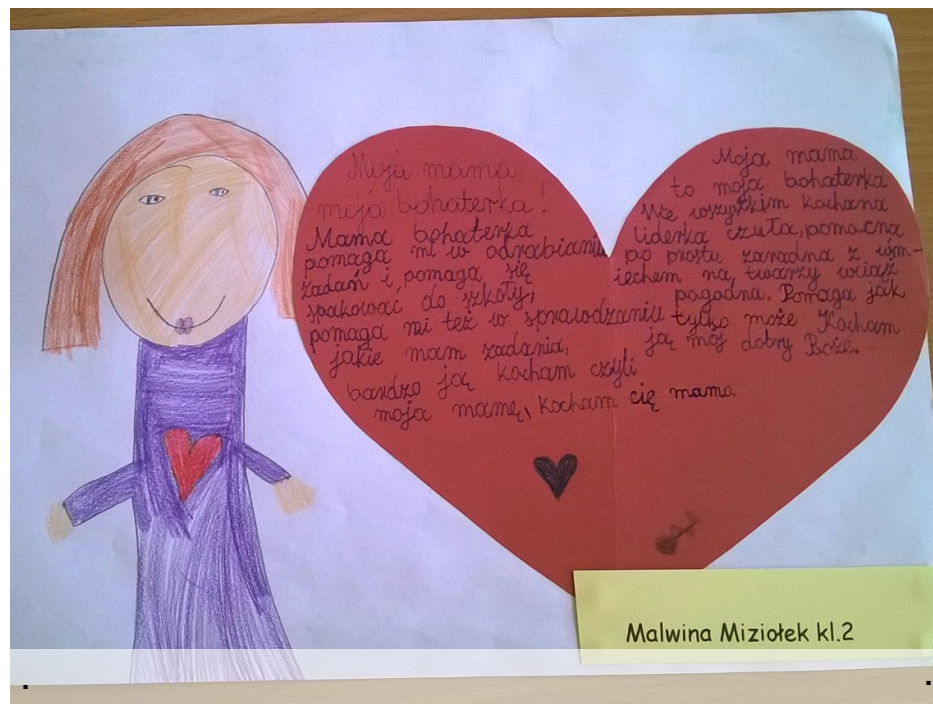 Moja mama
moja bohaterka!
Mama bohaterka
pomaga mi w odrabianiu
zadań i pomaga się
spakować do szkoły,
pomaga mi też w sprawodzaniu
jakie mam zadania,
bardzo ją kocham czyli
moja mamę, kocham cię mamo.
Moja mama
to moja bohaterka
We wszystkim kochana
liderka czuła, pomocna
po prostu zaradna z uśm-
iechem na twarzy wciąż
pogodna. Pomaga jak
tylko może Kocham
ją mój dobry Boże.
Malwina Miziołek kl.2